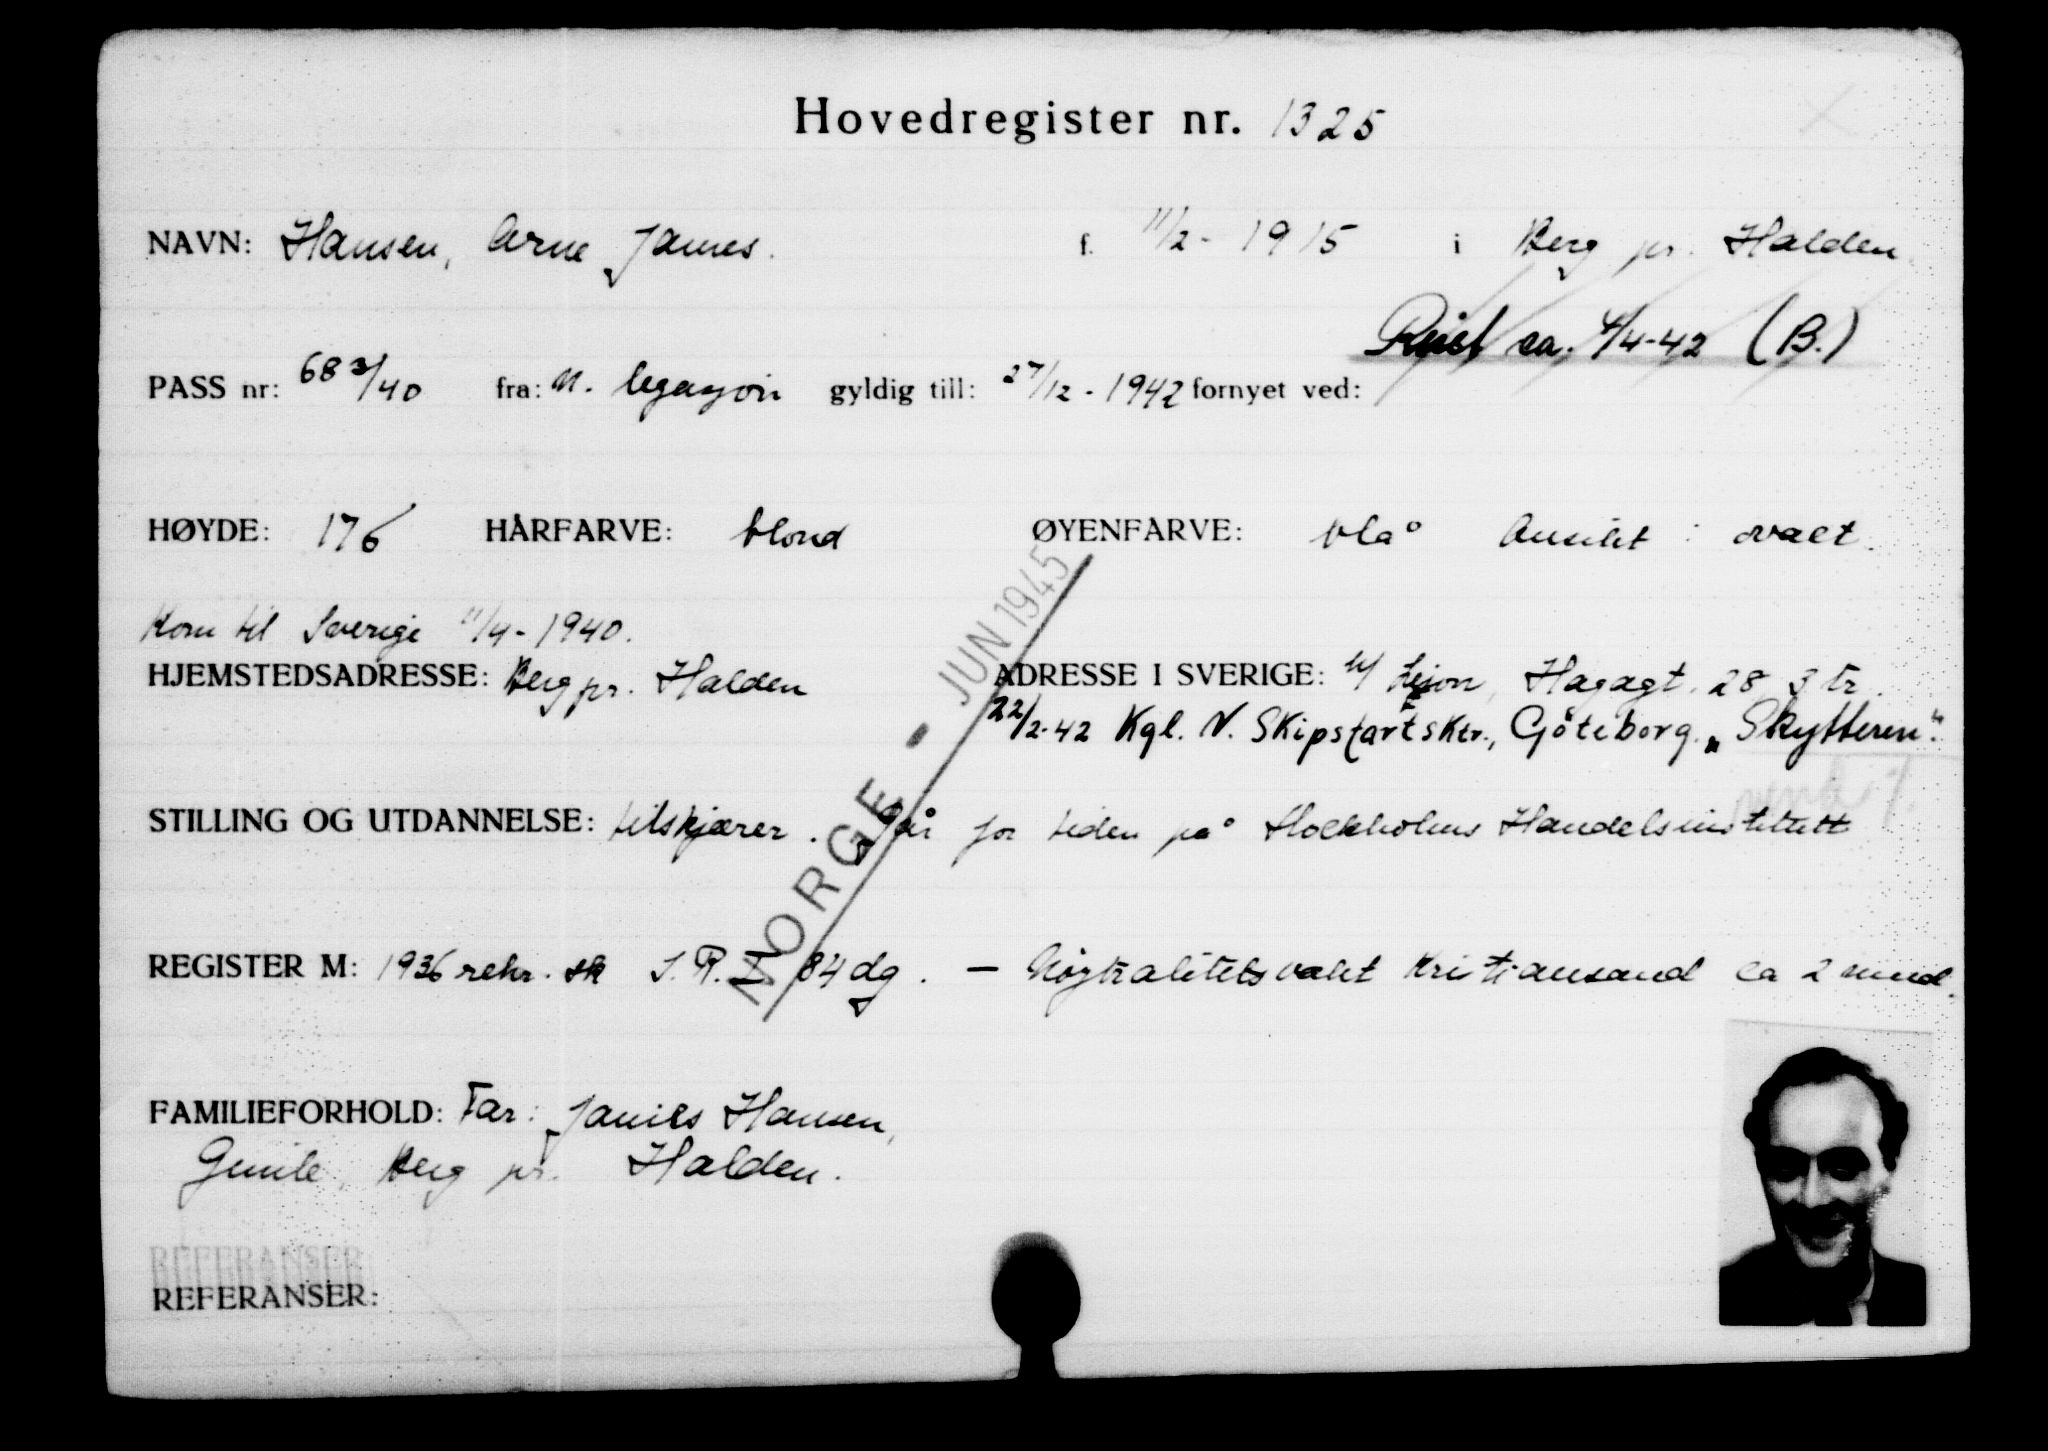 Hovedregister nr. 1325
NAVN: Hansen, Arne James. f. 11/2 - 1915 i Berg pr. Halden.
Reist ca. 4/4-42 (B.)
PASS nr: 683/40 fra: N. legasjon gyldig till: 27/12 - 1942 fornyet ved:
HØYDE: 176 HÅRFARVE: blond ØYENFARVE: blå Ansikt: ovalt.
Kom til Sverige 11/4 - 1940.
HJEMSTEDSADRESSE: Berg pr. Halden ADRESSE I SVERIGE: c/ Lejon, Hagagt. 28 3 tr.
22/2-42 Kgl. N. Skipsfartsktr., Göteborg. „Skytteren".
STILLING OG UTDANNELSE: tilskjærer. Går for tiden på Stockholms Handelsinstitutt
NORGE - JUN 1945
REGISTER M: 1936 rekr. sk I.R.I 84 dg. — Nøytralitetsvakt Kristiansand ca 2 mnd.
FAMILIEFORHOLD: Far: James Hansen,
Berg pr. Halden.
REFERANSER
REFERANSER: